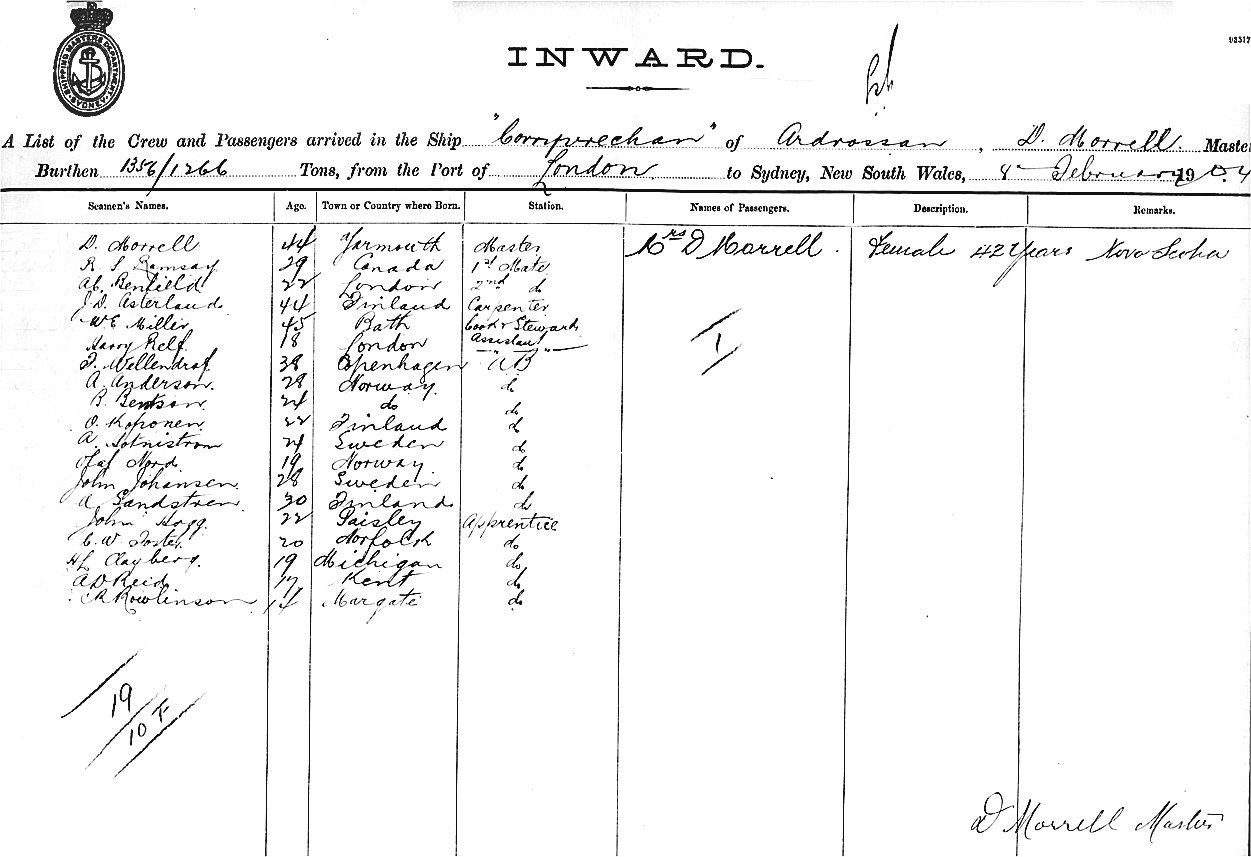 SHIPPING MASTERS DEPARTMENT SYDNEY
INWARD.
A List of the Crew and Passengers arrived in the Ship "Corryvrechan" of Ardrossan, D. Morrell. Master
Burthen 1356/1266 Tons, from the Port of London to Sydney, New South Wales, 8th February 1904
Seamen's Names. Age. Town or Country where Born. Station. Names of Passengers. Description. Remarks.
D. Morrell 44 Yarmouth Master Mrs D Morrell. Female 42 Years Nova Scotia
R S Ramsay 29 Canada 1st Mate
A.C. Benfield 22 London 2nd do
J.D. Asterlaud 44 Finland Carpenter
W E Miller 45 Bath Cook & Steward
Harry Relf 18 London Assistant
F. Wellendraf 38 Copenhagen "AB"
A. Anderson. 28 Norway. do
B. Bentson. 24 do do
O. Koponen. 22 Finland do
A. 24 Sweden do
Olaf Nord. 19 Norway. do
John Johansen. 28 Sweden do
A. Sandstren 30 Finland do
John Hogg. 22 Paisley Apprentice
C. W. Foster 20 Norfolk do
HL Clayberg. 19 Michigan do
A D Reid 17 Kent do
Rowlinson 14 Margate do
1
19
10 F
D Morrell Master